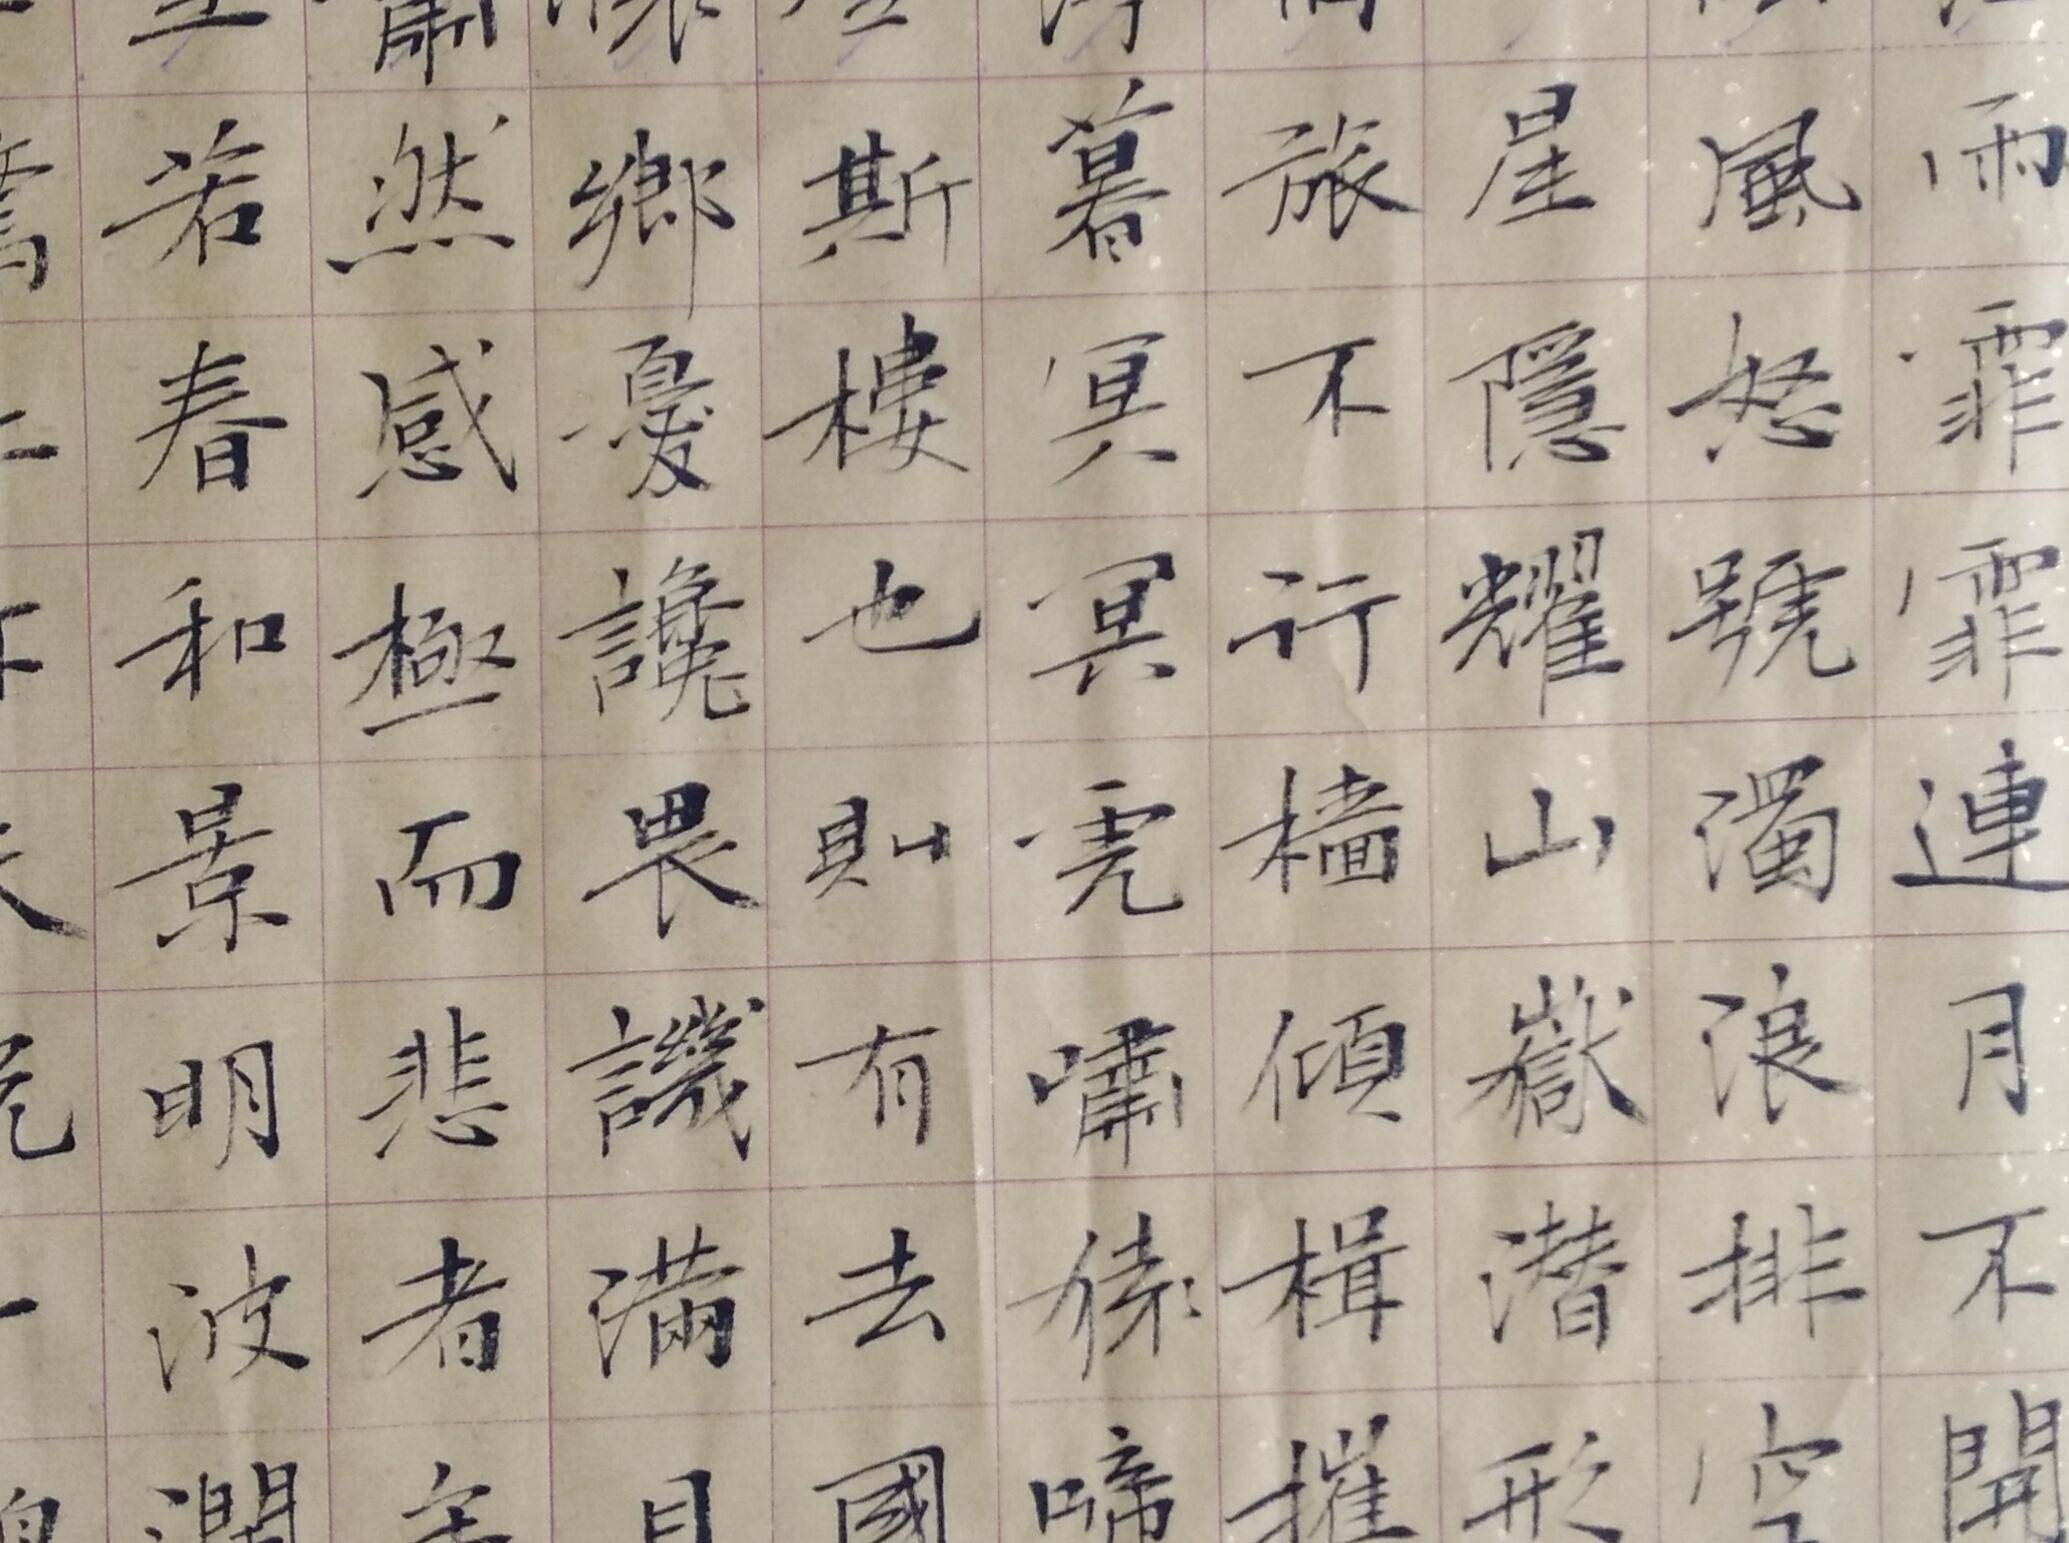 雨霏霏連月不開
風怒號濁浪排空
星隱耀山嶽潛形
旅不行檣傾楫摧
暮冥冥虎嘯猿啼
斯樓也則有去國
鄉憂讒畏譏滿目
然感極而悲者
若春和景明波瀾